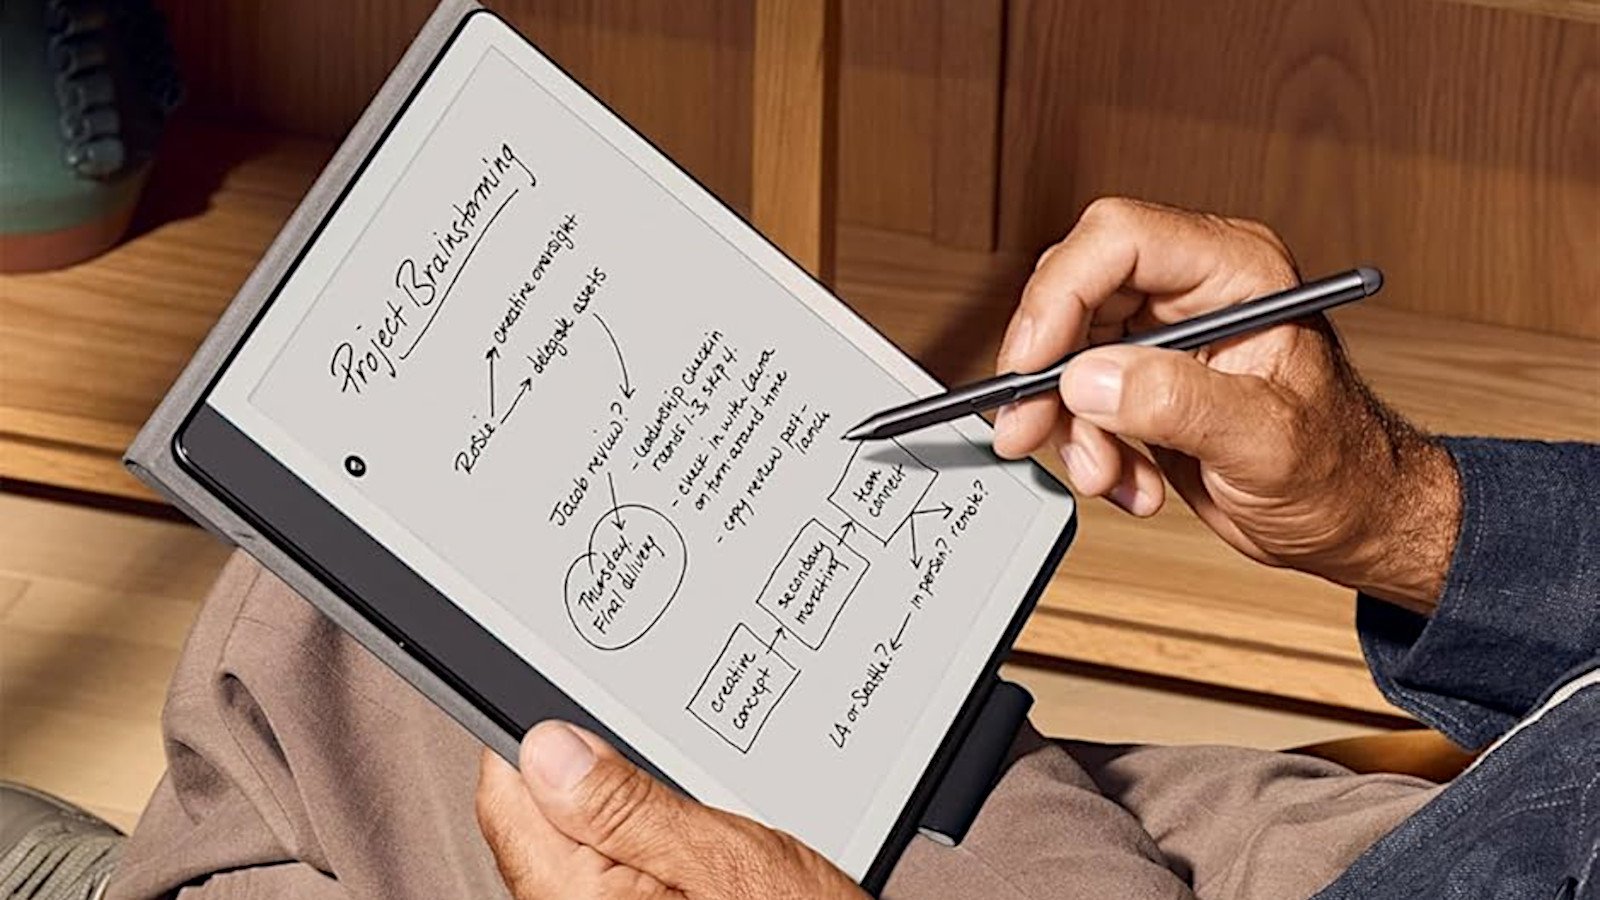 Project Brainstorming
Rosie
creative oversight
delegate assets
Jacob review?
- leadership checkin
rounds 1-3, skip 4.
- check in with Laura
on turn around time
- copy review post-
launch
Thursday!
Final delivery
creative
concept
secondary
marketing
team
connect
in person?
remote?
LA or Seattle?